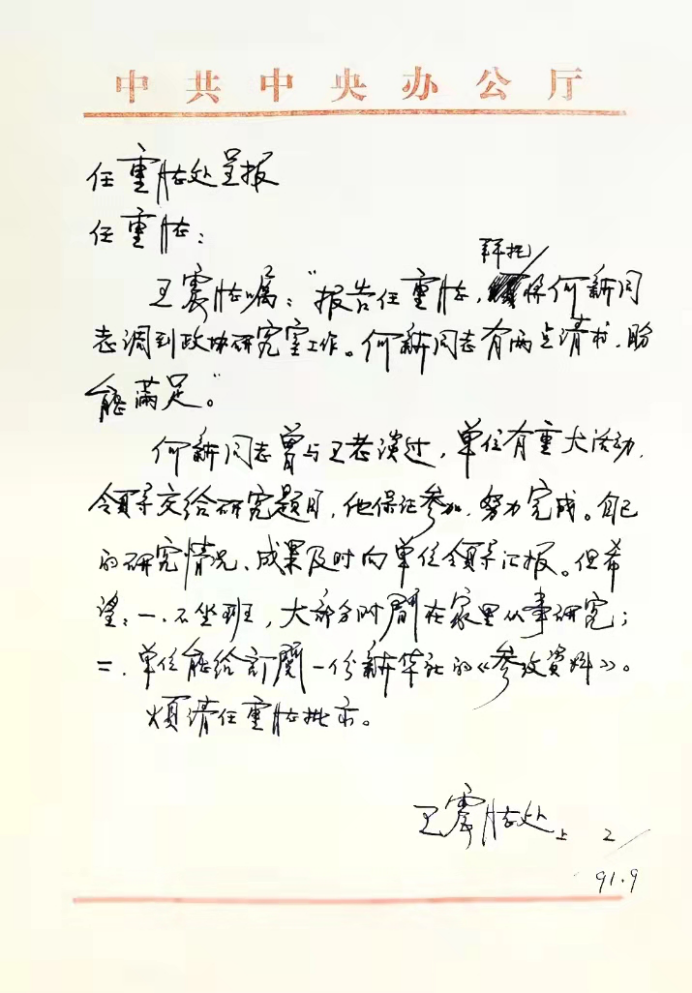 中共中央办公厅
任重办处呈报
任重办：
拜托
王震办嘱：“报告任重办，保何新同
志调到政协研究室工作。何新同志有两点请求，盼
能满足。”
何新同志曾与王老谈过，单位有重大活动、
领导交给研究题目，他保证参加、努力完成。自己
的研究情况、成果及时向单位领导汇报。但希
望：一、不坐班，大部分时间在家里从事研究；
二、单位能给訂閱一份新华社的《参攷資料》。
烦请任重办批示。
王震办处上 2/
91.9